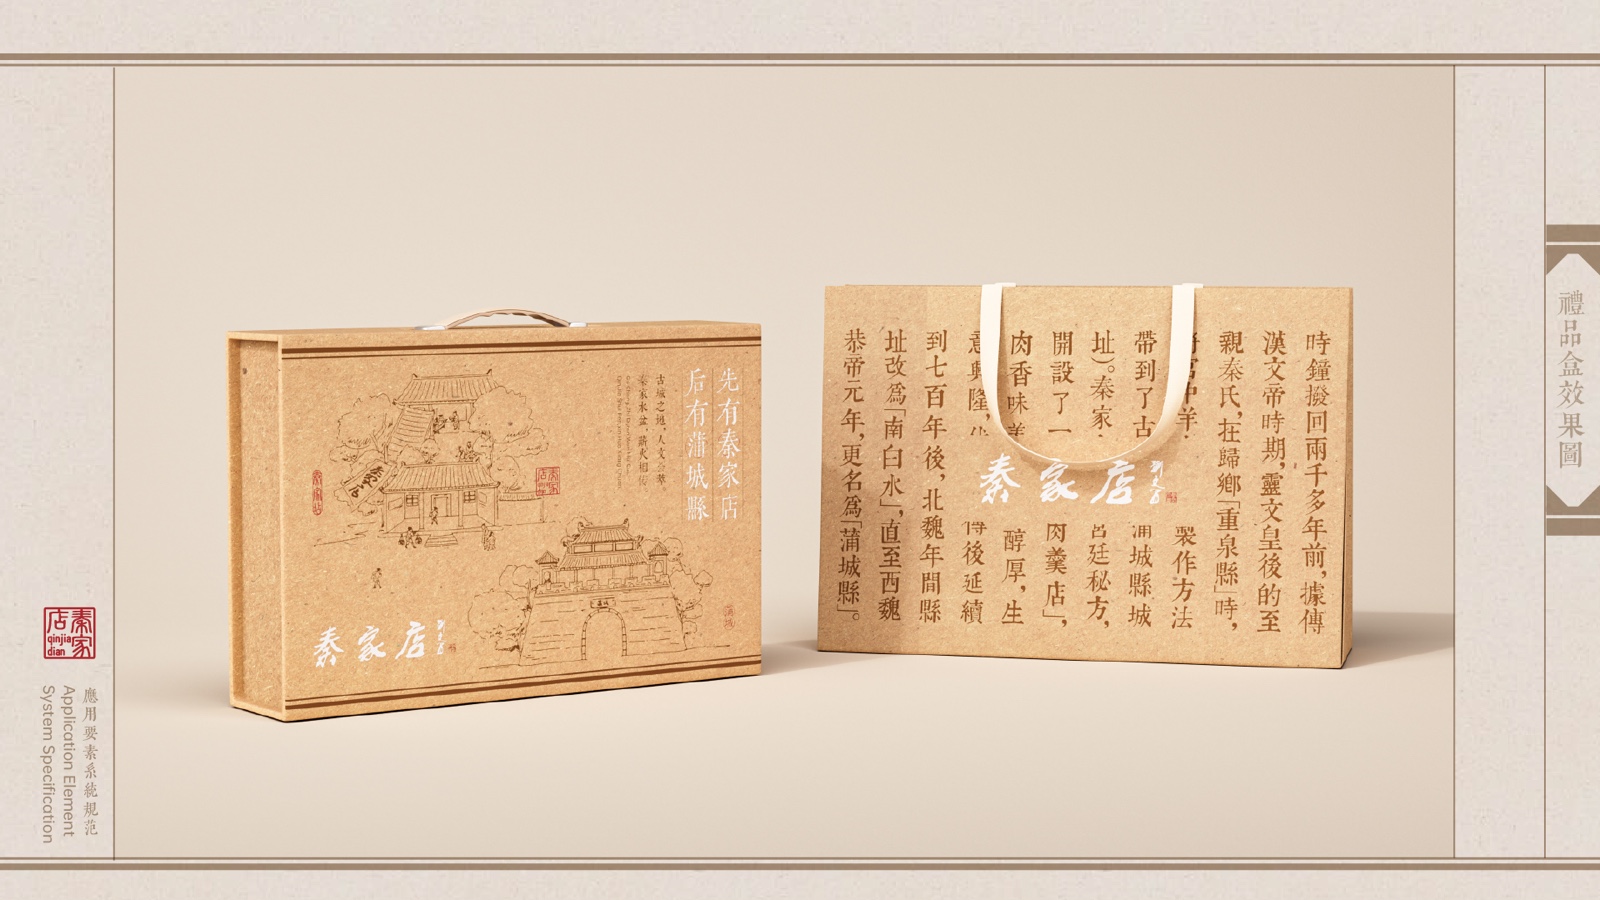 先有秦家店
后有蒲城縣
古城之地，人文荟萃。
秦家水盆，薪火相传
秦家店
秦家店
秦家店
蒲城
時鐘撥回兩千多年前，據傳
漢文帝時期，靈文皇後的至
親秦氏，在歸鄉「重泉縣」時，
製作方法
帶到了古
蒲城縣城
址）。秦家
宮廷秘方，
開設了一
肉羹店」，
肉香味美
醇厚，生
意興隆，
傳後延續
到七百年後，北魏年間縣
址改爲「南白水」，直至西魏
恭帝元年，更名爲「蒲城縣」。
秦家店
禮品盒效果圖
秦家店
qinjia
dian
應用要素系統規范
Application Element
System Specification